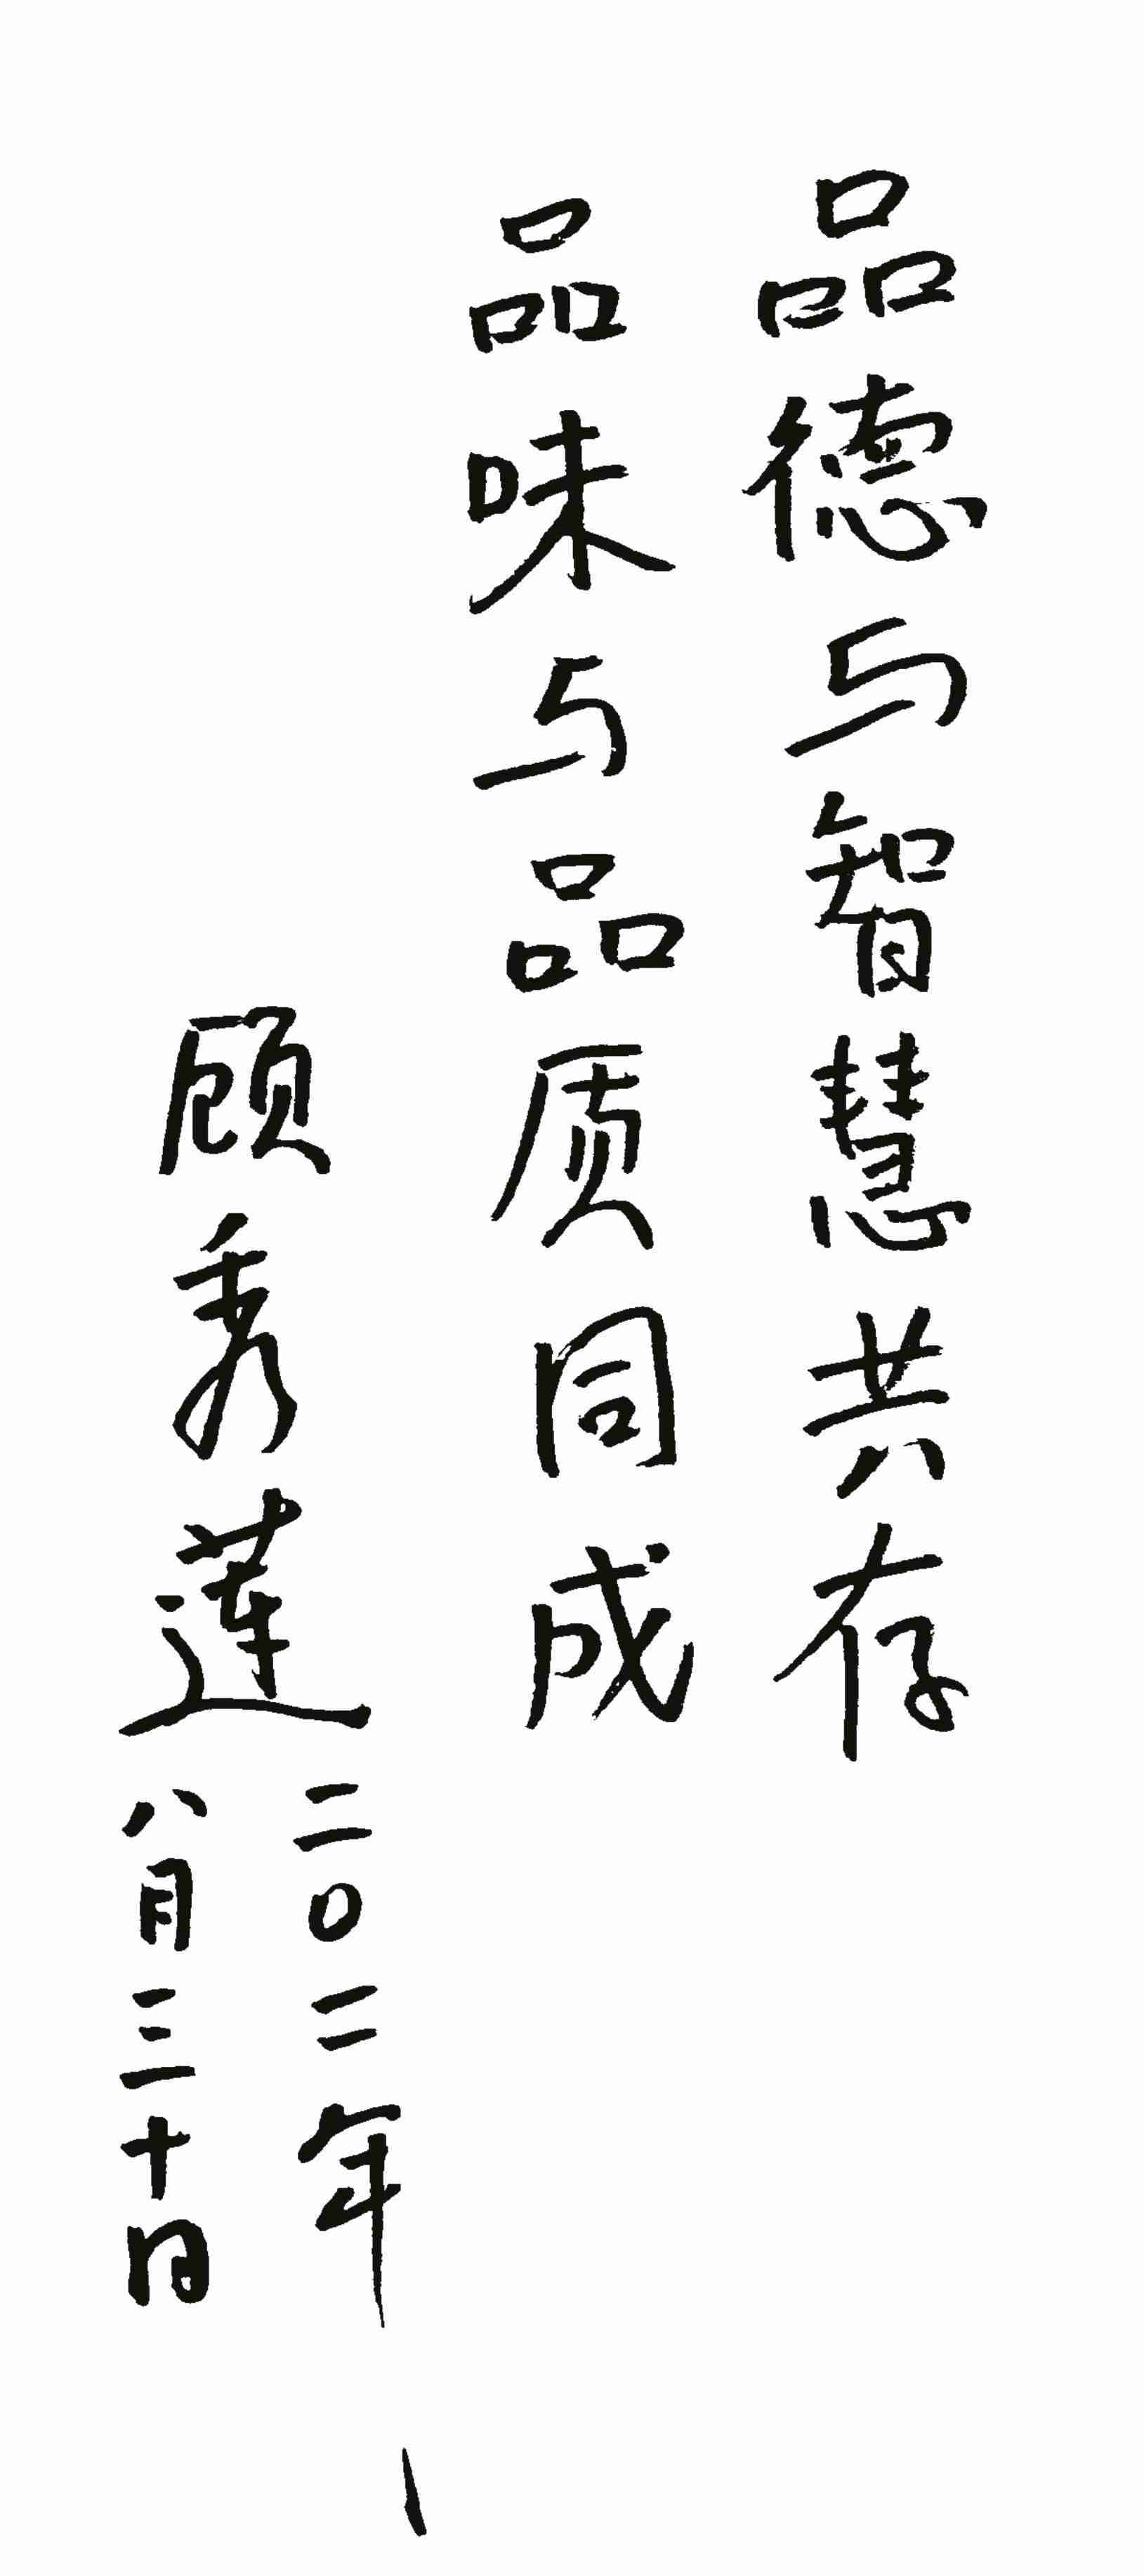 品德与智慧共存
品味与品质同成
顾秀莲
二〇一一年
八月三十日